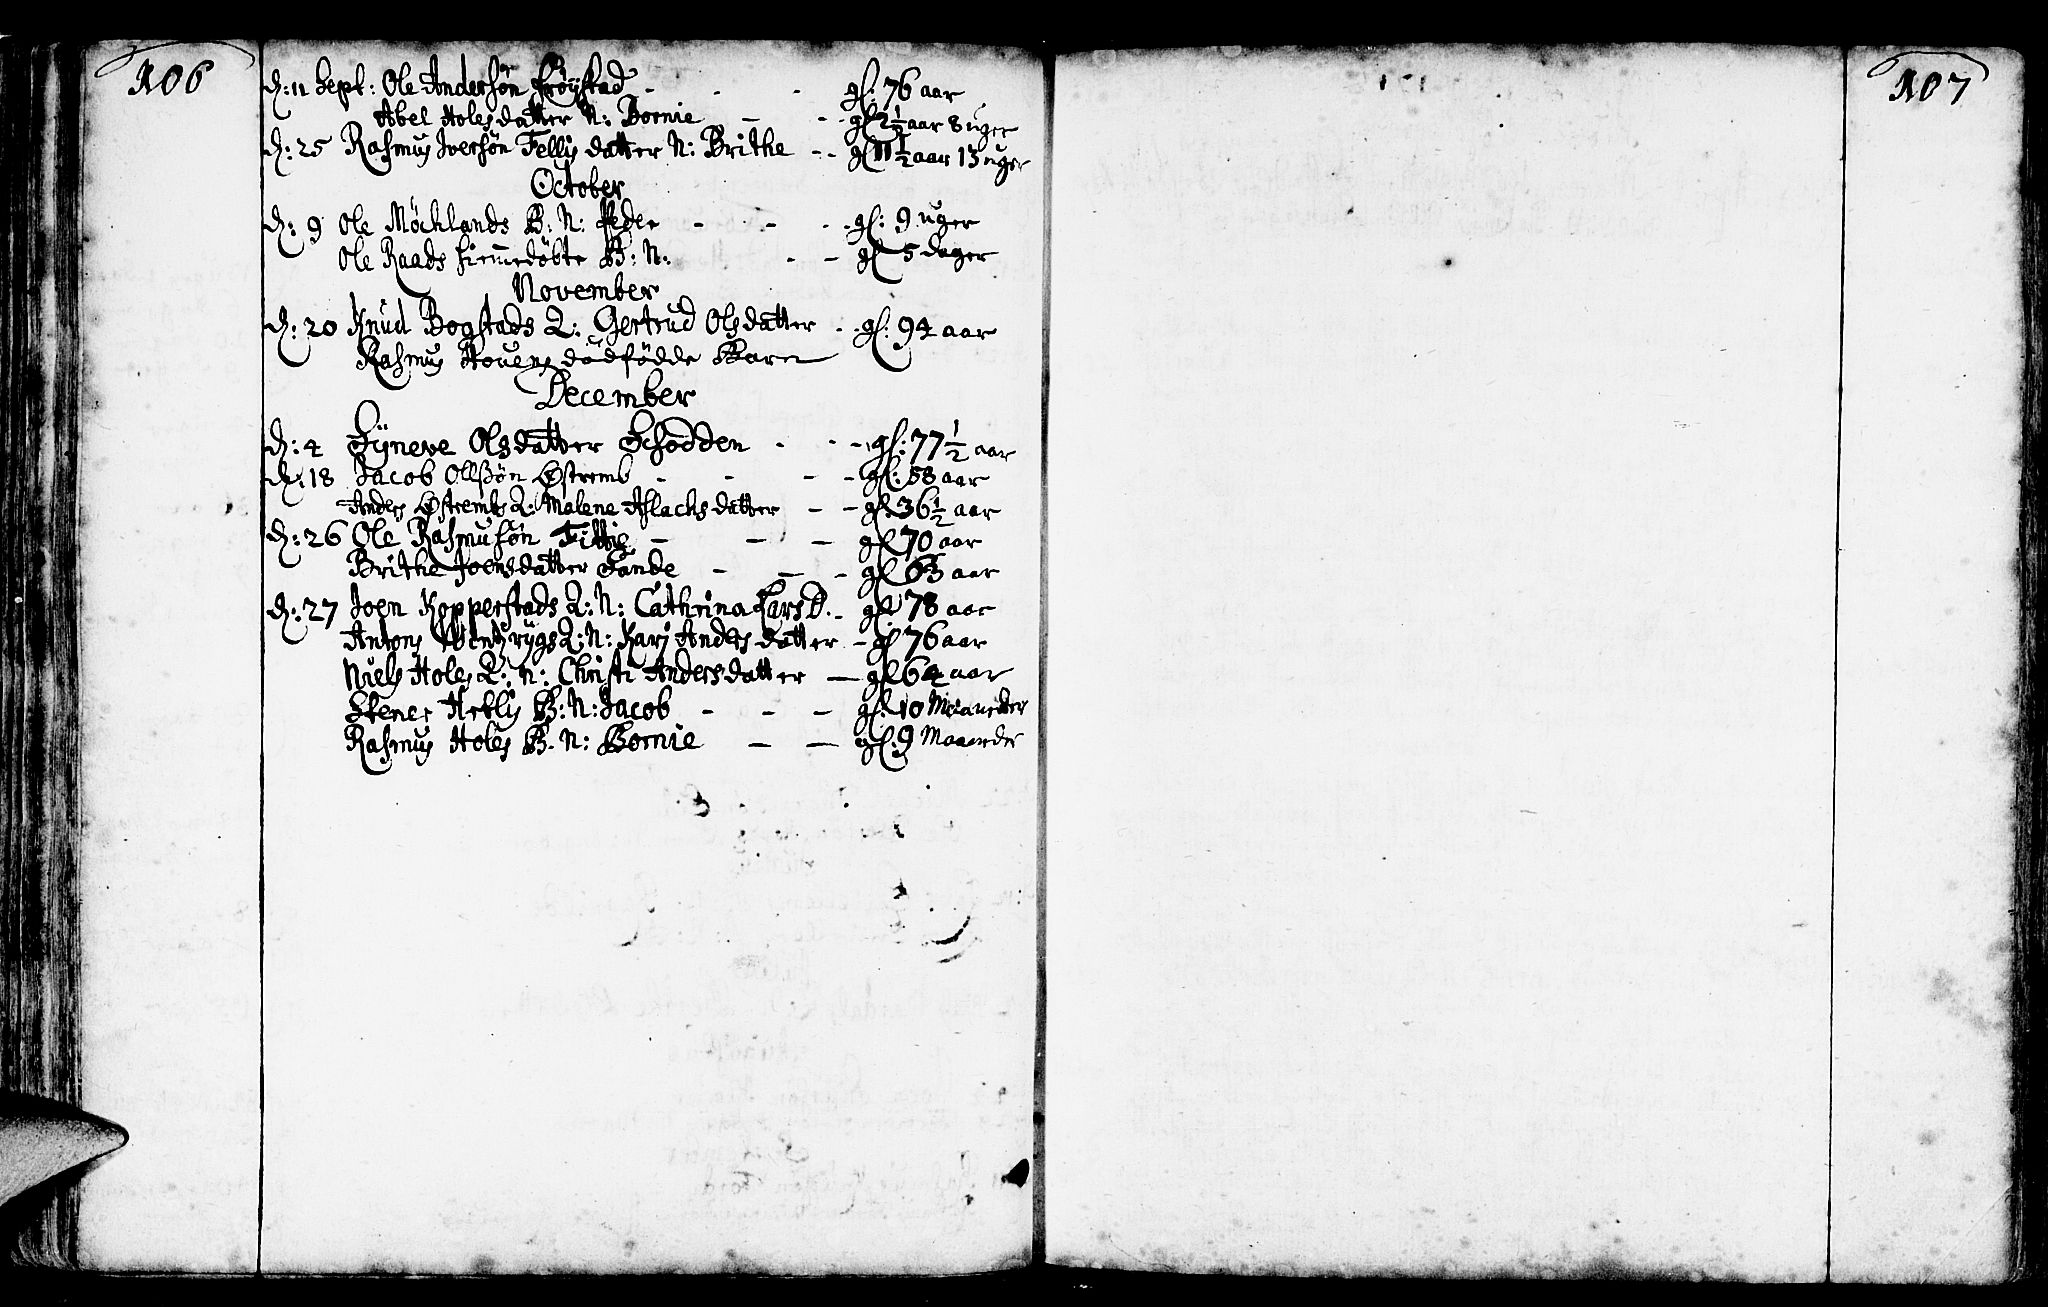 106
d: 11 Sept: Ole Andersøn Frøystad - - - gl: 76 aar
Abel Holes datter N: Bornie - - gl 2 1/2 aar 8 uger
d: 25 Rasmus Iversøn Fellis datter N: Brithe - - gl 11 1/2 aar 13 uger
October
d: 9 Ole Möcklands B: N: Peder - - - gl: 9 uger
Ole Raads hiemmedöbte B: N: - - gl 5 dager
November
d: 20 Knud Bogstads Q: Gertrud Olsdatter - gl: 94 aar
Rasmus Hovens dødfødde Barn
December
d: 4 Syneve Olsdatter Schodden - - - gl: 77 1/2 aar
d: 18 Jacob Ollssøn Østremb - - - - gl: 58 aar
Anders Østrembs Q: Malene Aslachs datter - - gl: 36 1/2 aar
d: 26 Ole Rasmusøn Fittie - - - gl 70 aar
Brithe Joensdatter Sande - - - gl 63 aar
d: 27 Joen Kopperstads Q: N: Cathrina Lars D. - gl 78 aar
Antons Q: N: Kari Anders datter - gl 76 aar
Niels Holes Q: n: Christi Andersdatter - gl 64 aar
Stener B: N: Jacob - - - gl: 10 Maaneder
Rasmus Holes B. N: Bornie - - gl: 9 Maaneder
107